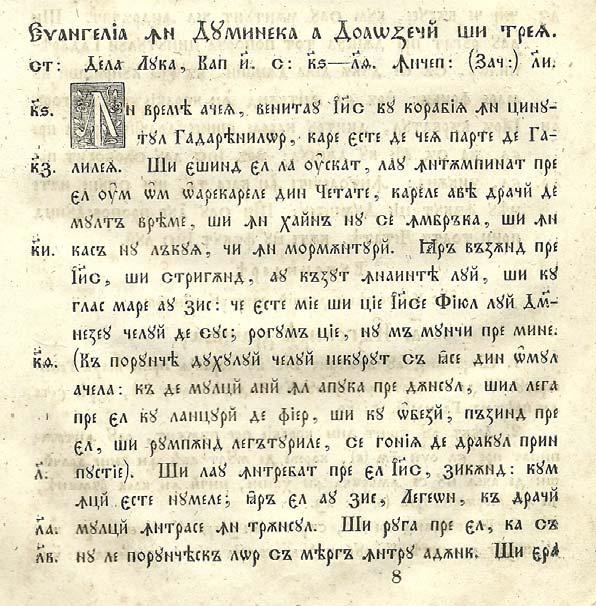 Еѵангелїа ꙟн Дꙋминека а Доаѡзечй ши треѧ.
ст: Дела Лꙋка, Кап и҃. с: к҃ѕ—л҃ѳ. Ꙟнчеп: (Зач:) л҃и.
к҃ѕ. Ꙟн времѣ ачеѧ, венитаꙋ І҆и҃с кꙋ корабїа ꙟн цинꙋ-
тꙋл Гадаре́нилѡр, каре есте де чеѧ парте де Га-
к҃з. лилеѧ. Ши ешинд ел ла ᲂу҆скат, лаꙋ ꙟнтѫмпинат пре
ел ᲂу҆м ѡ҆м ѡ҆арекареле дин Четате, кареле авѣ драчй де
мꙋлт врѣме, ши ꙟн хайнъ нꙋ се ꙟмбръка, ши ꙟн
к҃и. касъ нꙋ лъкꙋѧ, чи ꙟн мормѫнтꙋрй. Ꙗръ възѫнд пре
І҆и҃с, ши стригѫнд, аꙋ къзꙋт ꙟнаинтѣ лꙋй, ши кꙋ
глас маре аꙋ зис: че есте мїе ши цїе І҆и҃се Фїюл лꙋй Дм҃-
незеꙋ челꙋй де сꙋс; рогꙋм цїе, нꙋ мъ мꙋнчи пре мине.
к҃ѳ. (Къ порꙋнчѣ дꙋхꙋлꙋй челꙋй некꙋрꙋт съ ꙗ҆се дин ѡ҆мꙋл
ачела: къ де мꙋлцй анй ꙟл апꙋка пре дѫнсꙋл, шил лега
пре ел кꙋ ланцꙋрй де фїер, ши кꙋ ѡ҆безй, пъзинд пре
ел, ши рꙋмпѫнд легътꙋриле, се гонїа де дракꙋл прин
л҃. пꙋстїе). Ши лаꙋ ꙟнтребат пре ел І҆и҃с, зикѫнд: кꙋм
ꙟцй есте нꙋмеле; ꙗ҆ръ ел аꙋ зис, Легеѡн, къ драчй
л҃а. мꙋлцй ꙟнтрасе ꙟн трѫнсꙋл. Ши рꙋга пре ел, ка съ
л҃в. нꙋ ле порꙋнчѣскъ лѡр съ мѣргъ ꙟнтрꙋ адѫнк. Ши ераѧ
8